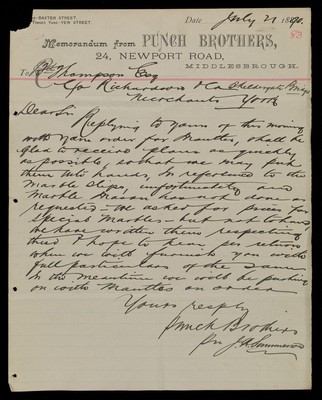 BAXTER STREET.
VEN STREET.
Date July 21 1890.
Memorandum from PUNCH BROTHERS,
24, NEWPORT ROAD,
MIDDLESBROUGH.
To Thompson Esq
C/o Richardson & Co Skeldergate Bridge
Merchants York
Dear Sir
Replying to yours of this morning
with your order for Mantles, shall be
glad to receive plans as quickly
as possible, so that we may put
them into hands, In reference to the
Marble Slips, unfortunately our
Marble Mason has not done as
requested - we asked for prices for
Special Marbles but not to hand
we have written them respecting
this & hope to hear per return
when we will furnish you with
full particulars of the same
In the meantime we will be pushing
on with Mantles on order
Yours respfly
Punch Brothers